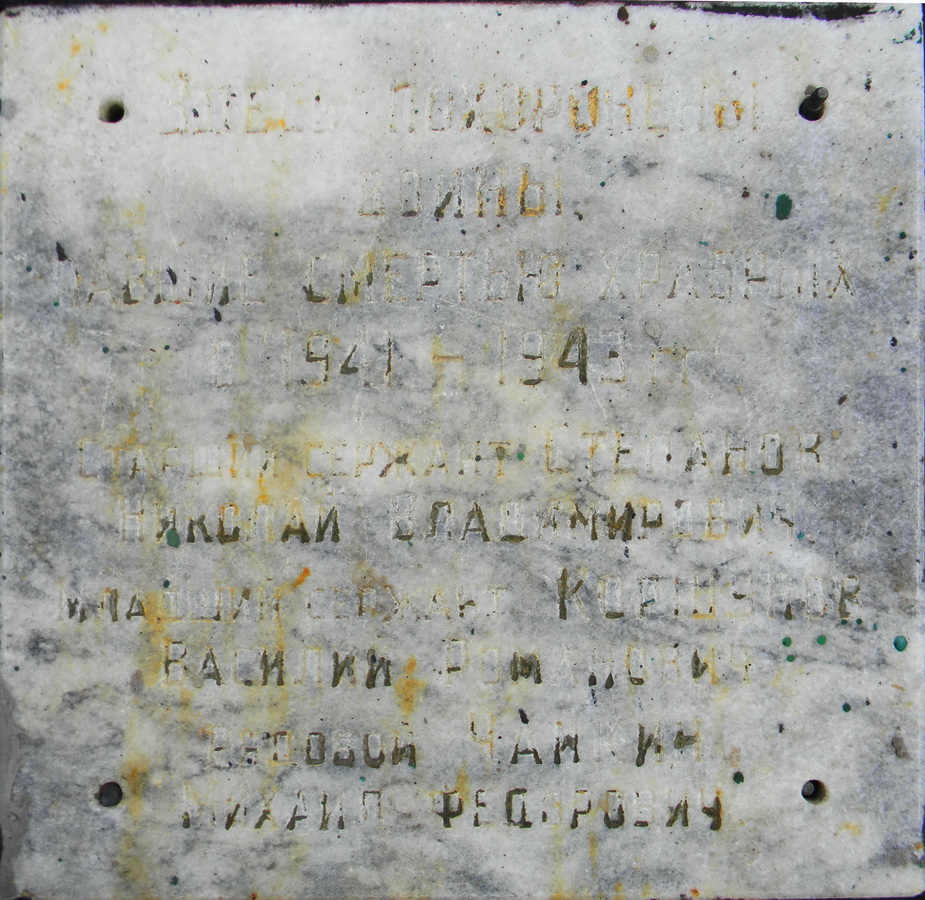 ЗДЕСЬ ПОХОРОНЕНЫ
ВОИНЫ,
ПАВШИЕ СМЕРТЬЮ ХРАБРЫХ
В 1941 - 1943 ГГ
СТАРШИЙ СЕРЖАНТ СТЕПАНОВ
НИКОЛАЙ ВЛАДИМИРОВИЧ
МЛАДШИЙ СЕРЖАНТ
ВАСИЛИЙ РОМАНОВИЧ
РЯДОВОЙ ЧАЙКИН
МИХАИЛ ФЕДОРОВИЧ